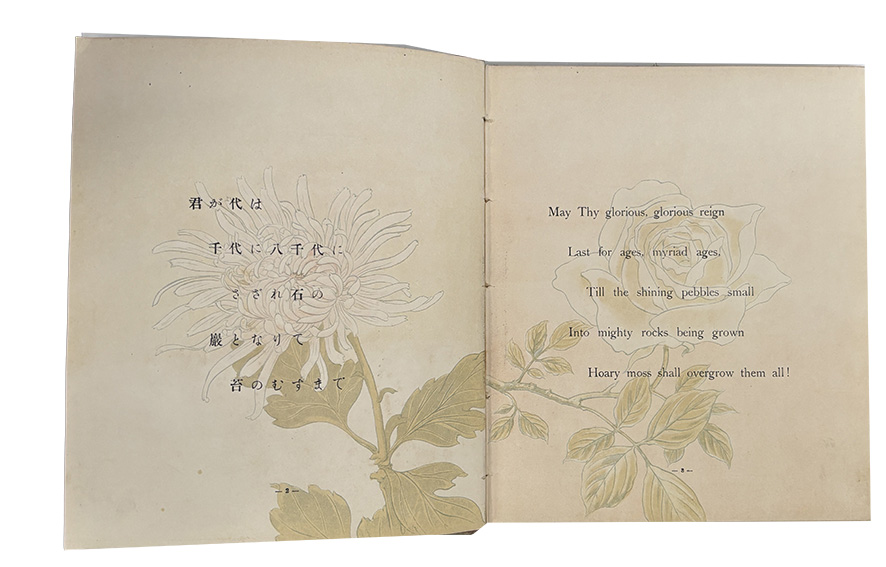 君が代は
千代に八千代に
さざれ石の
巌となりて
苔のむすまで
—2—
May Thy glorious, glorious reign
Last for ages, myriad ages,
Till the shining pebbles small
Into mighty rocks being grown
Hoary moss shall overgrow them all!
—3—